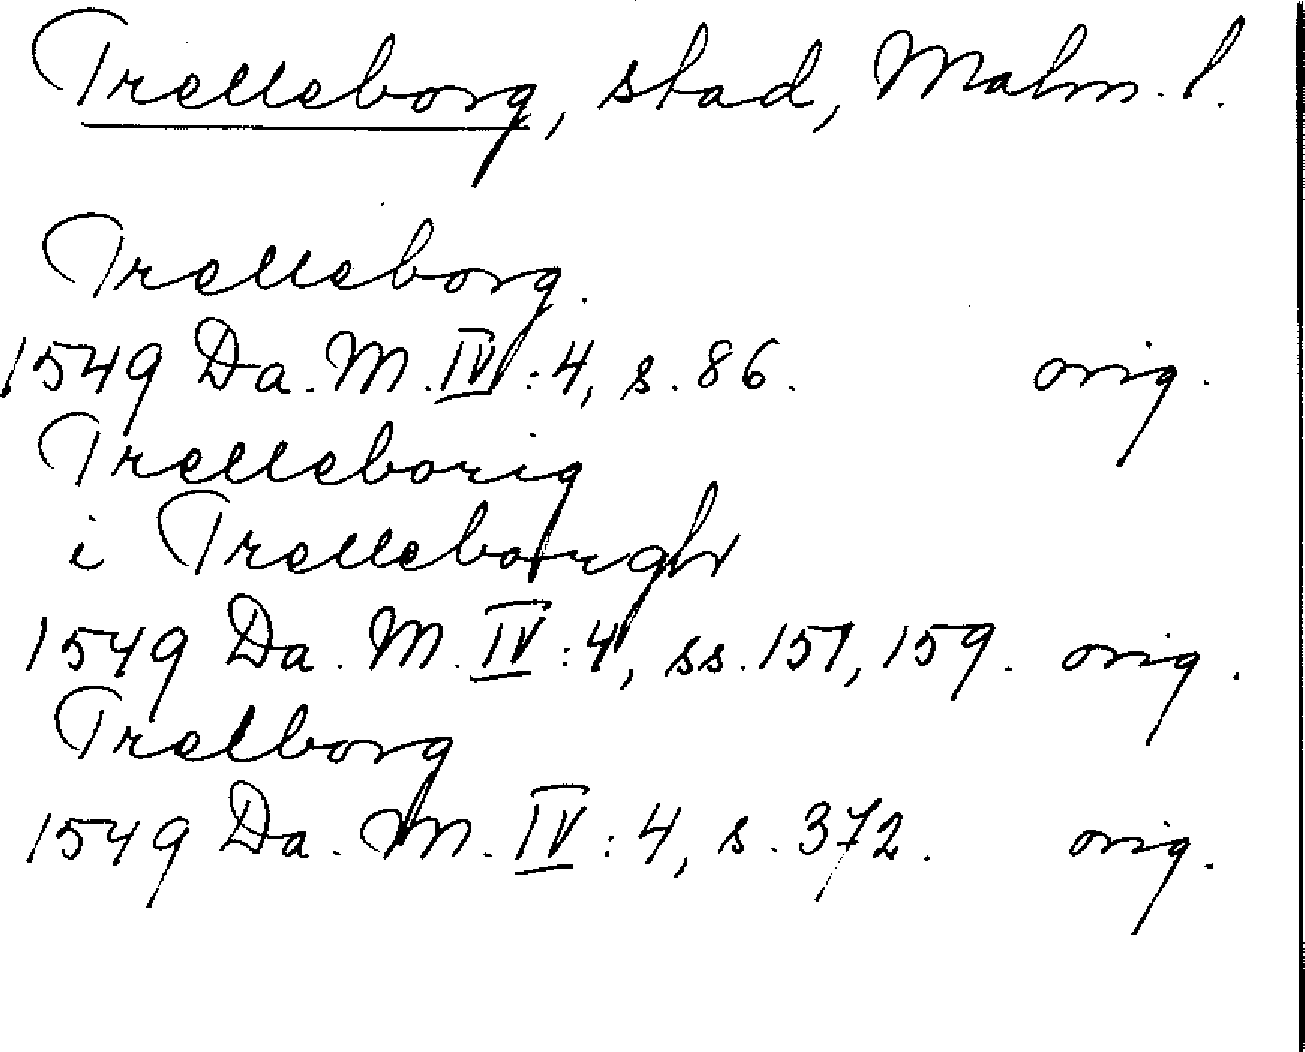 Trelleborg, stad, Malm. l.
Trelleborg.
1549 Da. M. IV:4, s. 86. orig.
Trelleborig
i Trelleborgh
1549 Da. M. IV:4, ss. 151, 159. orig.
Trelborg
1549 Da. M. IV:4, s. 372. orig.